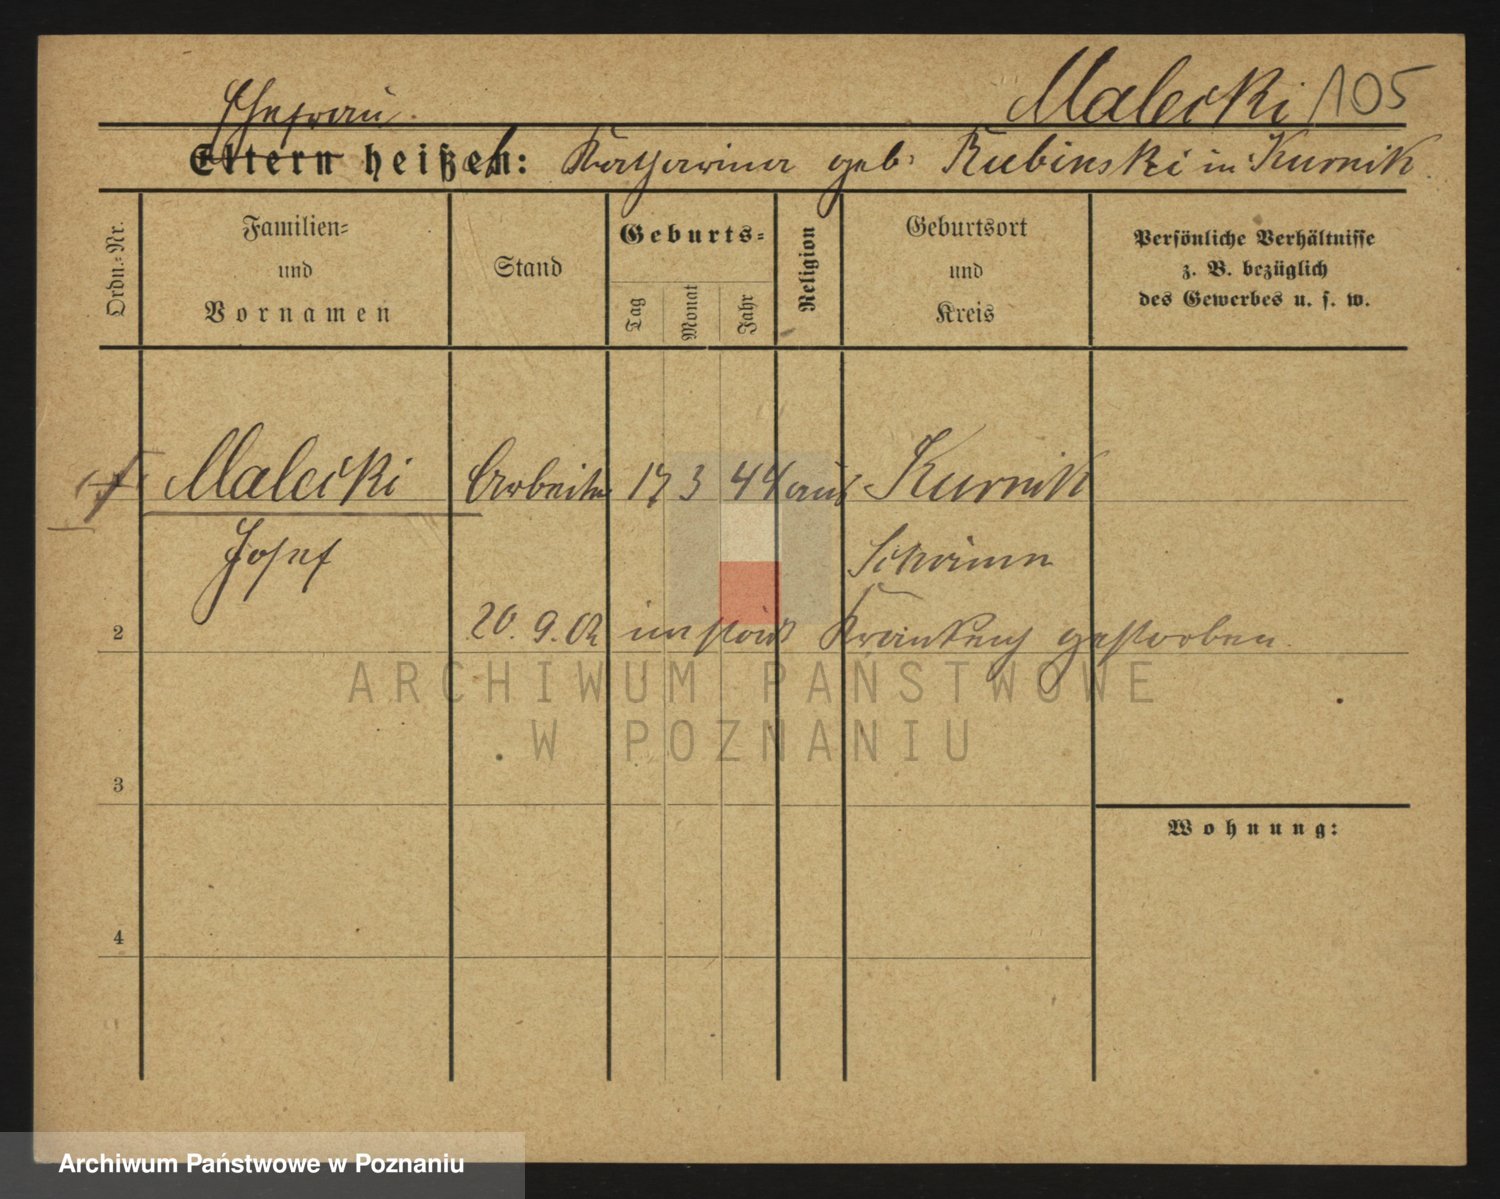 Malecki 105
Ehefrau.
Eltern heißen: Katharina geb. Rubinski in Kurnik.
Ordn.-Nr.
Familien-
und
Vornamen
Stand
Geburts-
Tag
Monat
Jahr
Religion
Geburtsort
und
Kreis
Persönliche Verhältnisse
z. B. bezüglich
des Gewerbes u. s. w.
Malecki Arbeiter 17 3 44 aus Kurnik
Josef Schrimm
2 20. 9. 02 im städt Krankenh gestorben.
ARCHIWUM PAŃSTWOWE
W POZNANIU
3
Wohnung:
4
Archiwum Państwowe w Poznaniu